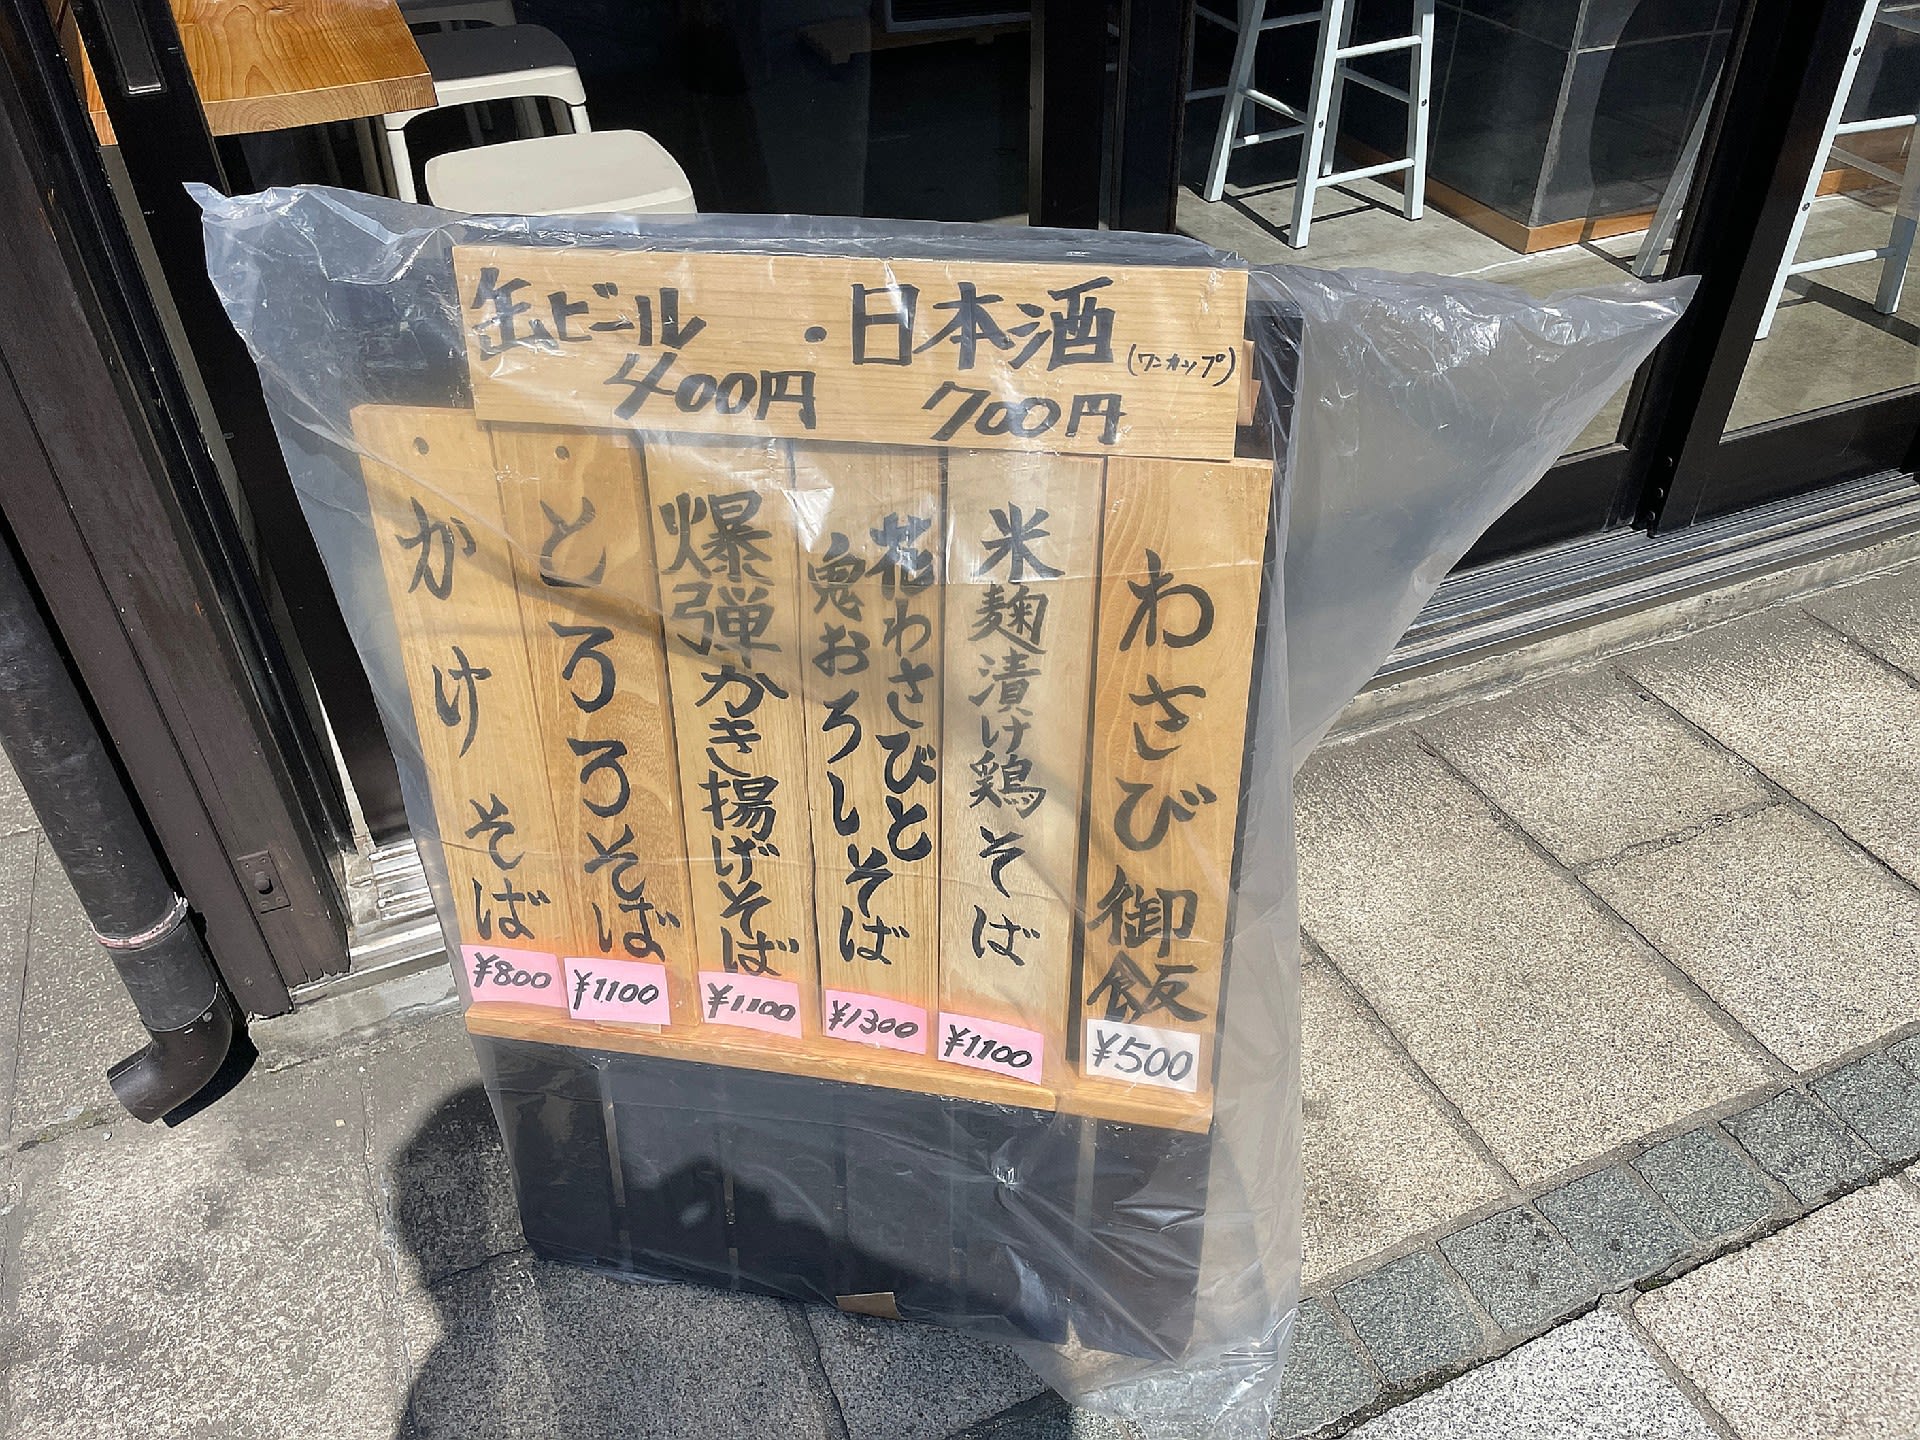 缶ビール ・日本酒(ワンカップ)
400円 700円
わさび御飯
¥500
米麹漬け鶏そば
¥1100
花わさびと
鬼おろしそば
¥1300
爆弾かき揚げそば
¥1100
とろろそば
¥1100
かけそば
¥800